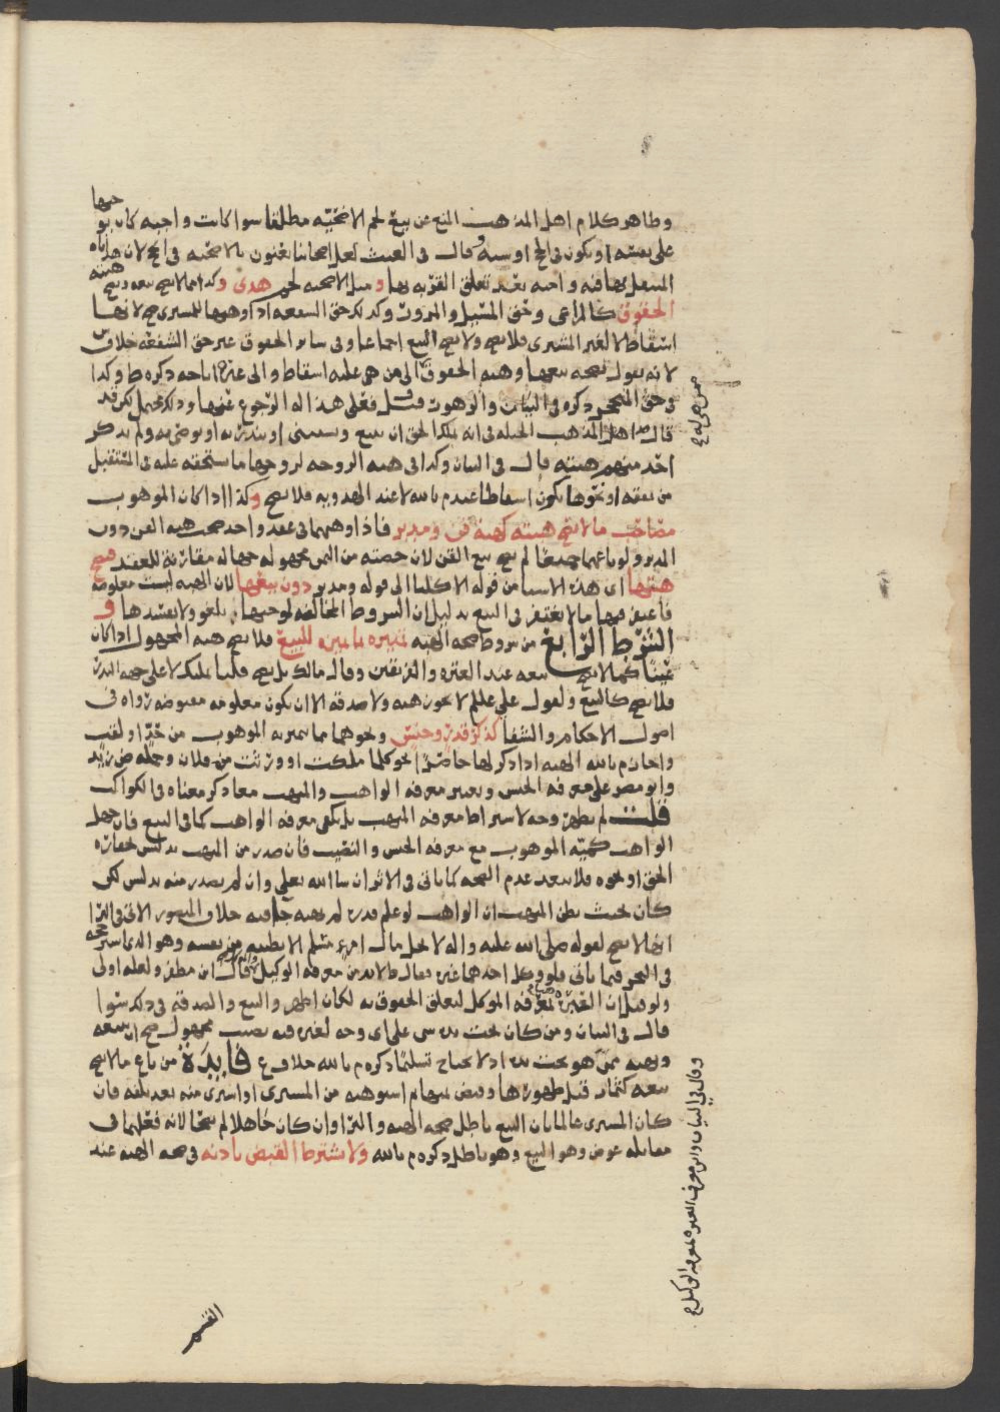 وظاهر كلام اهل المذهب المنع عن بيع لحم الاضحيه مطلقا سوا كانت واجبه كان يوجبها
على نفسه او يكون في الحج او سنه وقال في الغيث لعل اصحابنا يعنون بالاضحيه في الحج لان هداياه
المتنفل بها فيه واجبه بعد تعلق القربه بها ومثل الاضحيه لحم هدى وكذا ما لا يصح بيعه ويصح هبته
الحقوق كالمراعى وحق المسيل والمرور وكذلك حق الشفعه اذا وهبها للمشترى صح لانها
اسقاط لا لغير المشترى فلا يصح ولا يصح البيع اجماعا وفى سائر الحقوق غير حق الشفعه خلاف
لانه يقول بصحه بيعها وهبه الحقوق الى من هى عليه اسقاط والى غيره اباحه ذكره ط وكذا
فى حق المتحجر ذكره في البيان والزهور قيل فعلى هذا له الرجوع عنها وذلك محتمل لكن قد
قال اهل المذهب الحيله فى انه يملك الحق ان يبيع ويستثنى او ينذر به او يوصى به ولم يذكر
احد منهم هبته قال فى البيان وكذا فى هبه الزوجه لزوجها ما تستحقه عليه فى المستقبل
من نفقه او نحوها يكون اسقاطا عند م بالله لا عند الهدويه فلا يصح وكذا اذا كان الموهوب
مصاحب ما لا يصح هبته كهبه قن ومدبر فاذا وهبهما فى عقد واحد صحت هبه القن دون
المدبر ولو باعهما جميعا لم يصح بيع القن لان حصته من الثمن مجهوله جهاله مقارنه للعقد فيصح
هبتها اى هذه الاشيا من قوله الا كلبا الى قوله ومدبر دون بيعها لان الهبه ليست معلومه
فاغتفر فيها ما لا يغتفر فى البيع بدليل ان الشروط المخالفه لموجبها تلغو ولا يفسدها و
الشرط الرابع من شروط صحه الهبه تمييزه بما يميزه للبيع فلا يصح هبه المجهول اذا كان
عينا كما لا يصح بيعه عند العتره والفريقين وقال مالك بل يصح قلنا تمليك لا على جهه النذر
فلا يصح كالبيع ولقول علي علم لا يجوز هبه ولا صدقه الا ان يكون معلومه مقبوضه رواه فى
اصول الاحكام والشفا كذكر قدر وجنس ونحوهما مما يتميز به الموهوب من حد او لقب
واجاز م بالله الهبه اذا ذكر لها حاصرا نحو كلما ملكت او ورثت من فلان وحمله ض زيد
وابو مضر على معرفه الجنس ويعتبر معرفه الواهب والمتهب معا ذكر معناه فى الكواكب
قلت لم يظهر وجه لاشتراط معرفه المتهب بل يكفى معرفه الواهب كما فى البيع فان جهل
الواهب كميه الموهوب مع معرفه الجنس والنصيب فان صدر من المتهب تدليس بحقاره
الحق او نحوه فلا يبعد عدم الصحه كما ياتى فى الاقرار ان شا الله تعلى وان لم يصدر منه تدليس لكن
كان بحيث يظن المتهب ان الواهب لو علم قدره لم يهبه
انها لا تصح لقوله صلى الله عليه واله لا يحل مال امرئ مسلم الا بطيبه من نفسه وهو الذى
فى البحر فيما ياتى فلو وكل احدهما غيره فقال ط لا بد من معرفه الوكيل وقال ابن مظفر ولعله اولى
ولو قيل ان العبره بمعرفه الموكل لتعلق الحقوق به لكان اظهر والبيع والصدقه فى ذلك سوا
قال فى البيان ومن كان تحت يده شى على اى وجه لغيره فيه نصيب مجهول صح ان يبيعه
ويهبه ممن هو تحت يده اذ لا يحتاج تسليما ذكره م بالله خلاف ع فايدة من باع ما لا يصح
بيعه كثمار قبل ظهورها وقبض ثمنها ثم استوهبه من المشترى او اشترى منه بعد تلفه فان
كان المشترى عالما بان البيع باطل صحه الهبه والبرا وان كان جاهلا لم يصحا لانه فعلهما فى
مقابله عوض وهو البيع وهو باطل ذكره م بالله ولا يشترط القبض باذنه فى صحه الهبه عند
ممن هى له ع
وقال فى البيان والمراد معرف العبره لمعرفه الوكيل ع
القسم